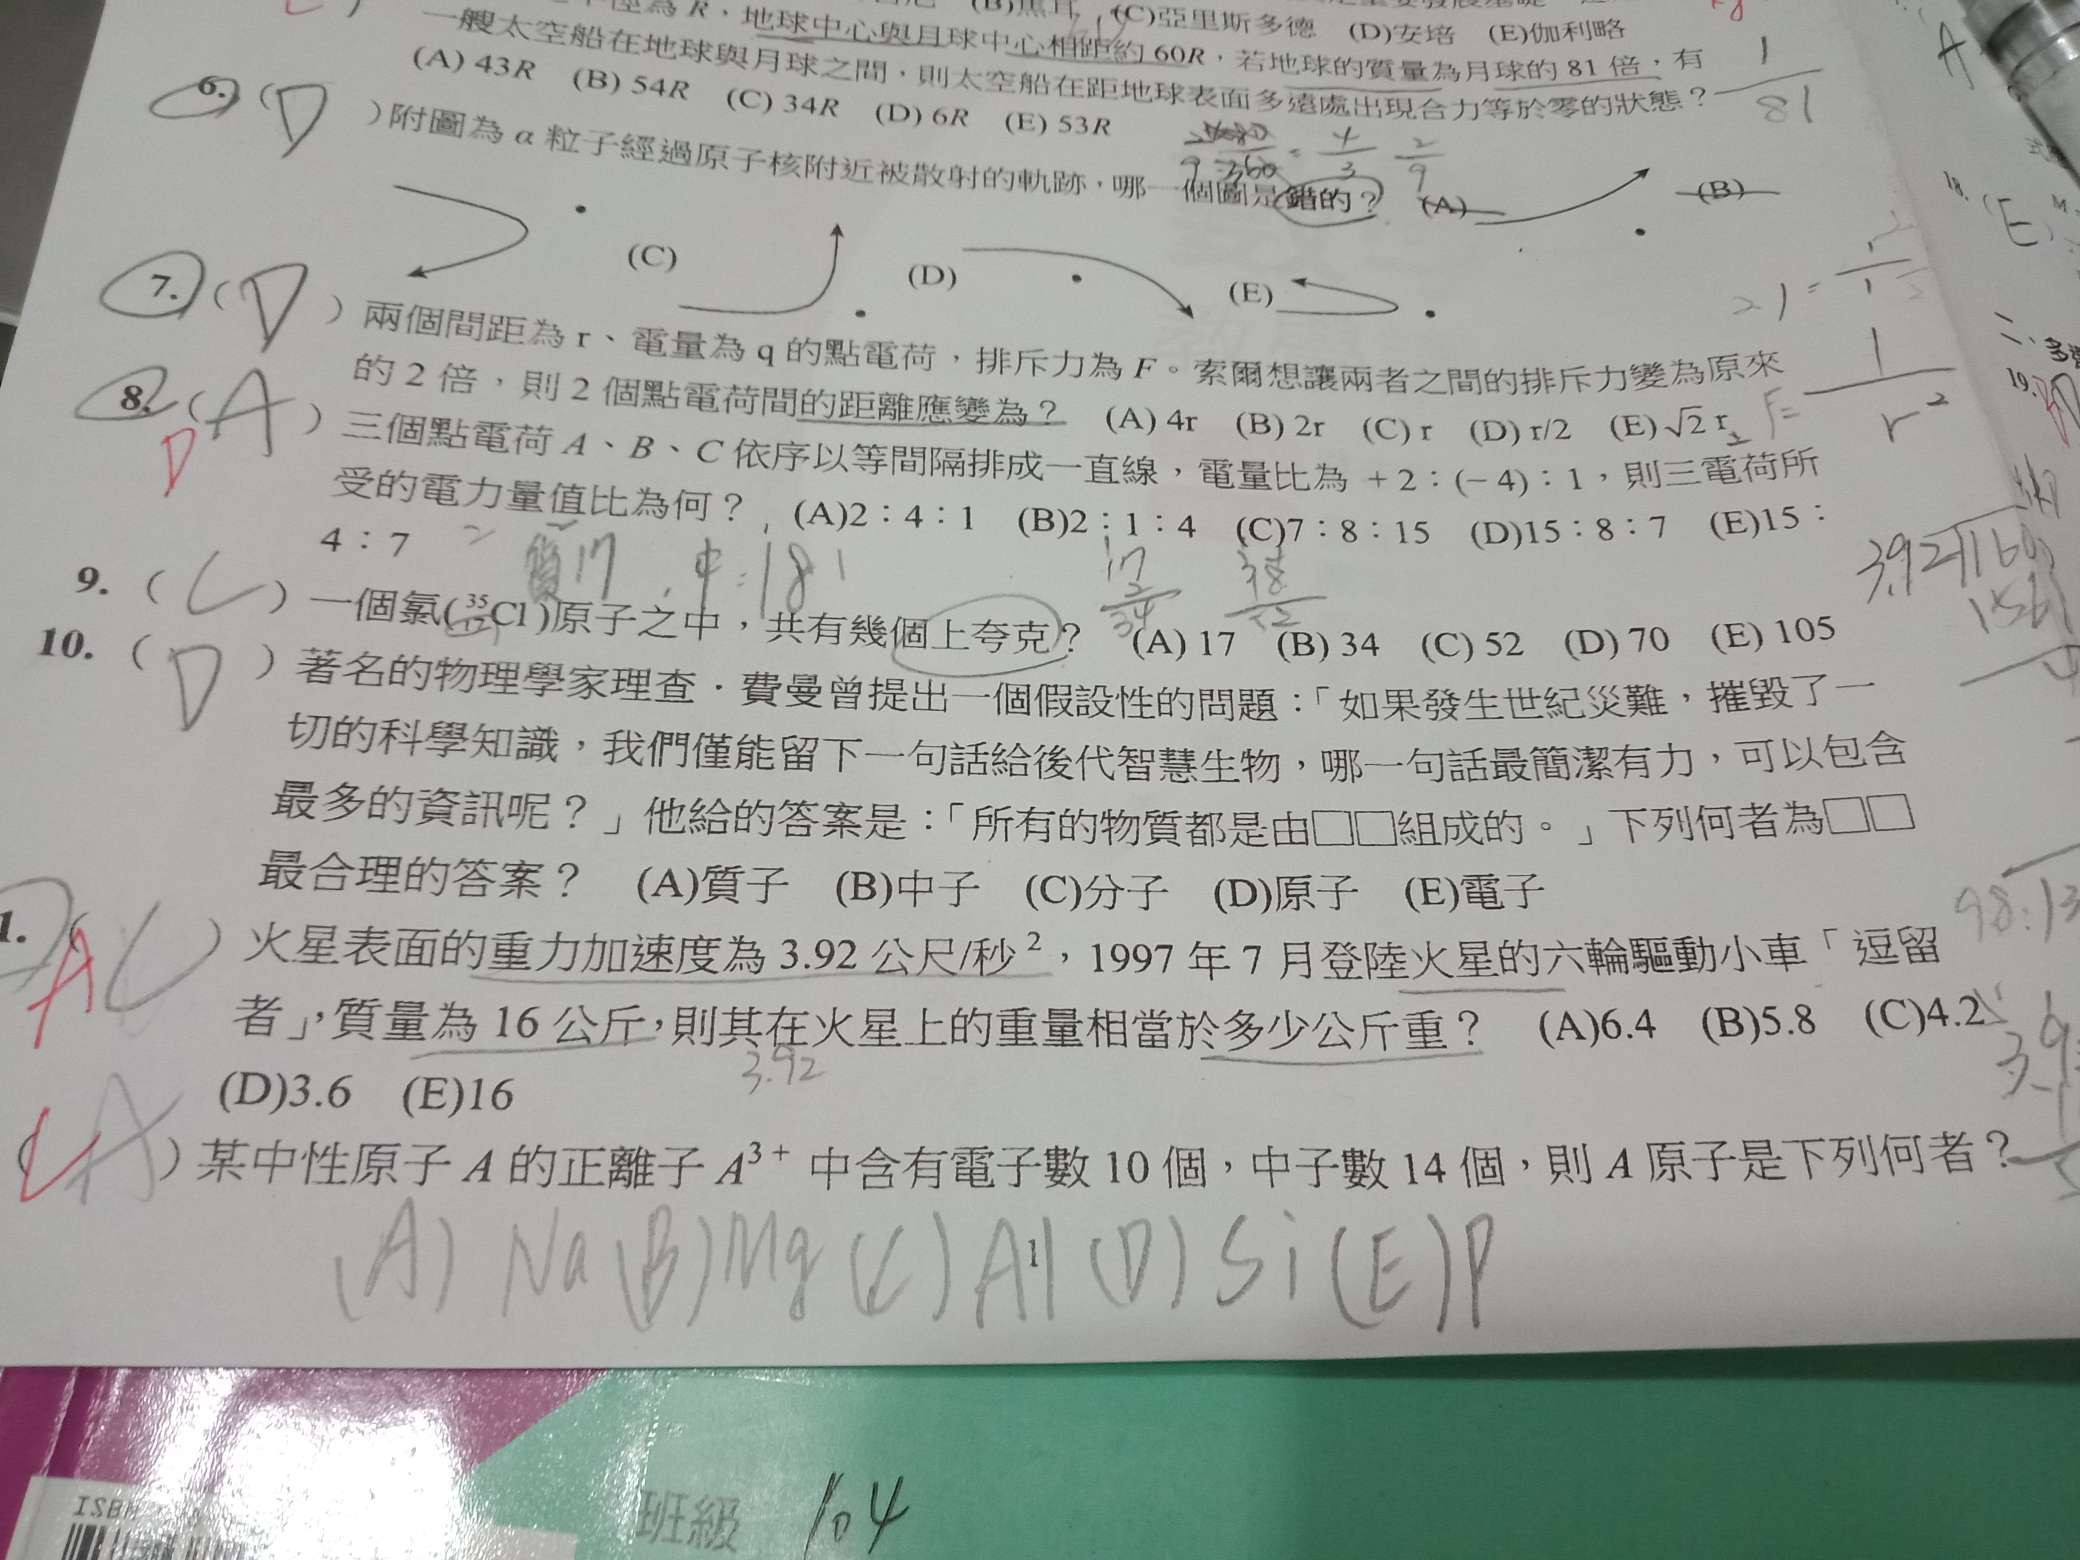 (C)亞里斯多德 (D)安培 (E)伽利略
徑為 R,地球中心與月球中心相距約 60R,若地球的質量為月球的 81 倍,有
一艘太空船在地球與月球之間,則太空船在距地球表面多遠處出現合力等於零的狀態?
(A) 43R (B) 54R (C) 34R (D) 6R (E) 53R
1/81
6. ( D )附圖為 α 粒子經過原子核附近被散射的軌跡,哪一個圖是錯的? (A) (B)
(C) (D) (E)
7. ( D )兩個間距為 r、電量為 q 的點電荷,排斥力為 F。索爾想讓兩者之間的排斥力變為原來
的 2 倍,則 2 個點電荷間的距離應變為? (A) 4r (B) 2r (C) r (D) r/2 (E) √2 r
F= 1/r²
8. ( A D )三個點電荷 A、B、C 依序以等間隔排成一直線,電量比為 +2:(-4):1,則三電荷所
受的電力量值比為何? (A)2:4:1 (B)2:1:4 (C)7:8:15 (D)15:8:7 (E)15:
4:7
質17 中:18
17 2 34
9. ( C )一個氯(³⁵₁₇Cl)原子之中,共有幾個上夸克? (A) 17 (B) 34 (C) 52 (D) 70 (E) 105
10. ( D )著名的物理學家理查.費曼曾提出一個假設性的問題:「如果發生世紀災難,摧毀了一
切的科學知識,我們僅能留下一句話給後代智慧生物,哪一句話最簡潔有力,可以包含
最多的資訊呢?」他給的答案是:「所有的物質都是由□□組成的。」下列何者為□□
最合理的答案? (A)質子 (B)中子 (C)分子 (D)原子 (E)電子
1. ( A C )火星表面的重力加速度為 3.92 公尺/秒²,1997 年 7 月登陸火星的六輪驅動小車「逗留
者」,質量為 16 公斤,則其在火星上的重量相當於多少公斤重? (A)6.4 (B)5.8 (C)4.2
3.92
(D)3.6 (E)16
( C A )某中性原子 A 的正離子 A³⁺ 中含有電子數 10 個,中子數 14 個,則 A 原子是下列何者?
(A) Na (B) Mg (C) Al (D) Si (E) P
1
ISBN
班級 104